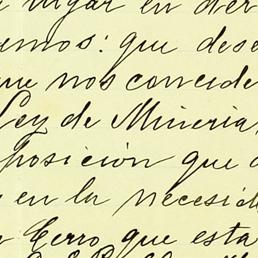 lugar en der
amos: que dese
que nos conside
Ley de Mineria
posición que
en la necesid
Cerro que esta